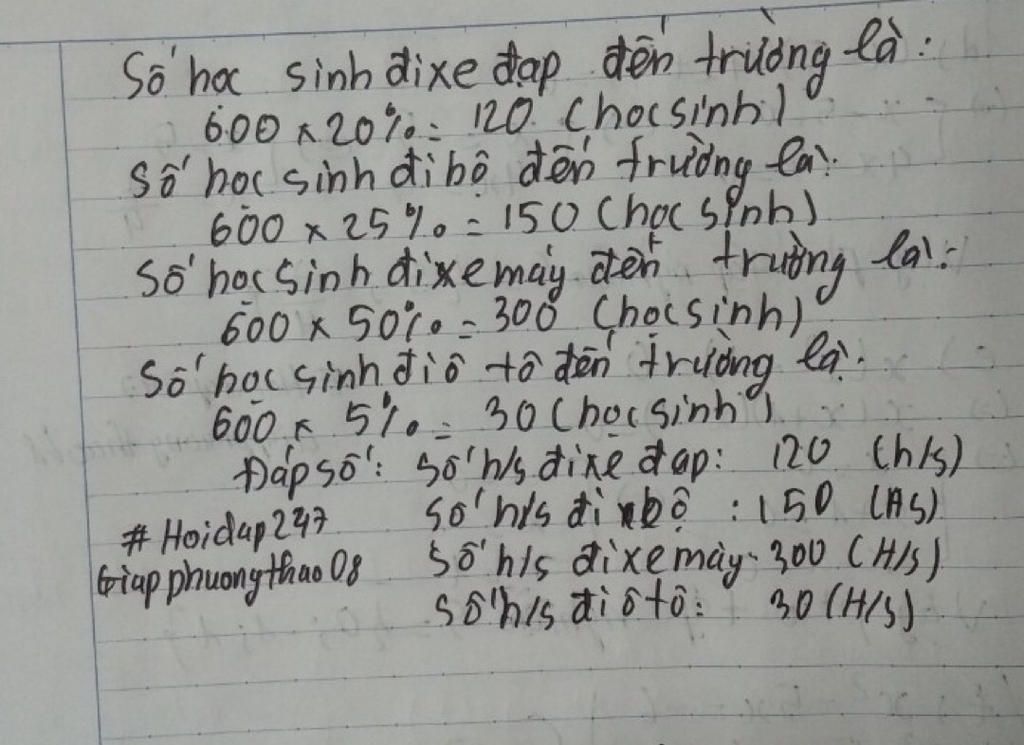 Số học sinh đi xe đạp đến trường là:
600 x 20% = 120 (học sinh)
Số học sinh đi bộ đến trường là:
600 x 25% = 150 (học sinh)
Số học sinh đi xe máy đến trường là:
600 x 50% = 300 (học sinh)
Số học sinh đi ô tô đến trường là:
600 x 5% = 30 (học sinh)
Đáp số: số h/s đi xe đạp: 120 (h/s)
số h/s đi bộ : 150 (HS)
số h/s đi xe máy: 300 (H/s)
số h/s đi ô tô: 30 (H/s)
# Hoidap247
Giapphuongthao08